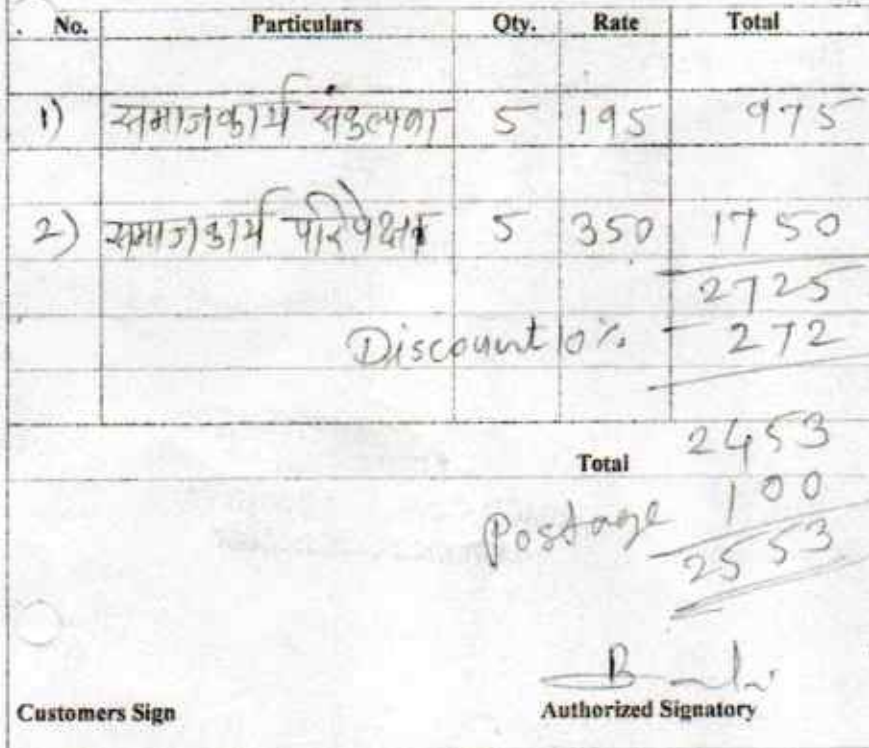 . No. Particulars Qty. Rate Total
1) समाजकार्य संकल्पना 5 195 975
2) समाजकार्य परिपेक्षा 5 350 1750
2725
Discount 10% - 272
Total 2453
Postage 100
2553
Customers Sign Authorized Signatory